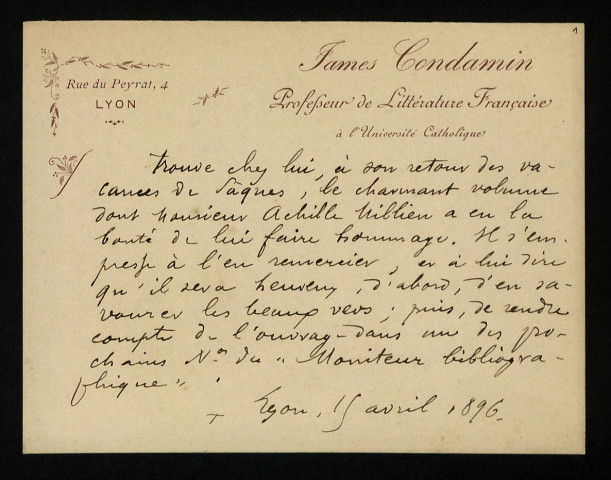 1
James Condamin
Professeur de Littérature Française
à l'Université Catholique
Rue du Peyrat, 4
LYON
trouve chez lui, à son retour des va-
cances de Pâques, le charmant volume
dont Monsieur Achille Millien a eu la
bonté de lui faire hommage. Il s'em-
presse à l'en remercier, et à lui dire
qu'il sera heureux, d'abord, d'en sa-
vourer les beaux vers ; puis, de rendre
compte de l'ouvrage dans un des pro-
chains Nos du "Moniteur bibliogra-
phique".
Lyon, 15 avril 1896.